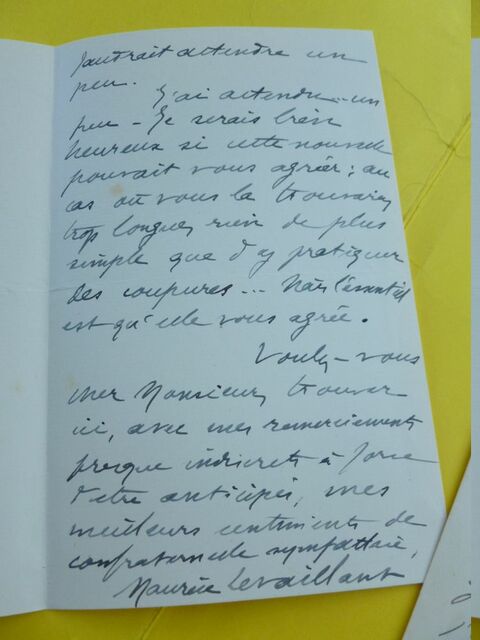 faudrait attendre un
peu.
J'ai attendu un
peu - Je serais bien
heureux si cette nouvelle
pouvait vous agréer ; au
cas où vous la trouveriez
trop longue, rien de plus
simple que d'y pratiquer
des coupures... Mais l'essentiel
est qu'elle vous agrée.
Voulez-vous
cher Monsieur, trouver
ici, avec mes remerciements
presque indiscrets à force
d'être anticipés, mes
meilleurs sentiments de
confraternelle sympathie,
Maurice Levaillant